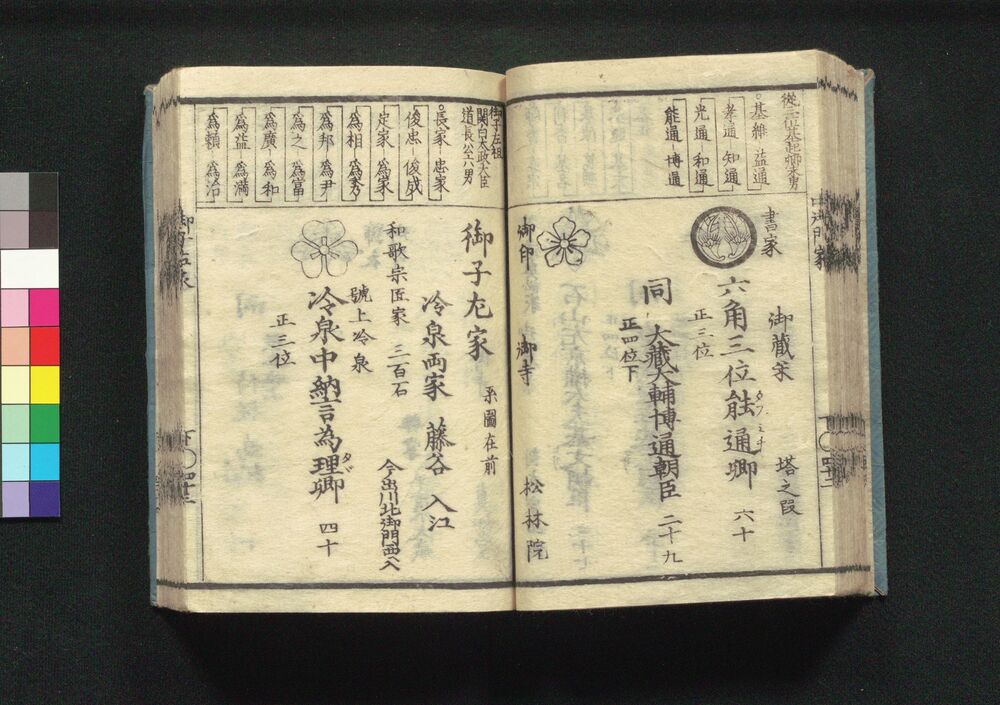 基維 益通
孝通 知通
光通 和通
能通 博通
書家
御蔵米
塔之段
六角三位能通卿 六十
タフ ミチ
正三位
同 大藏大輔博通朝臣 二十九
正四位下
御印 御寺 松林院
御子左祖
関白太政大臣
道長公六男
長家 忠家
俊忠 俊成
定家 為家
為相 為秀
為邦 為尹
為之 為富
為廣 為和
為益 為満
為頼 為治
御子左家 系圖在前
冷泉両家 藤谷 入江
和歌宗匠家 三百石 今出川北御門西入
號上冷泉
冷泉中納言為理卿 四十
タヾ
正三位
御子左家
下〇四十三